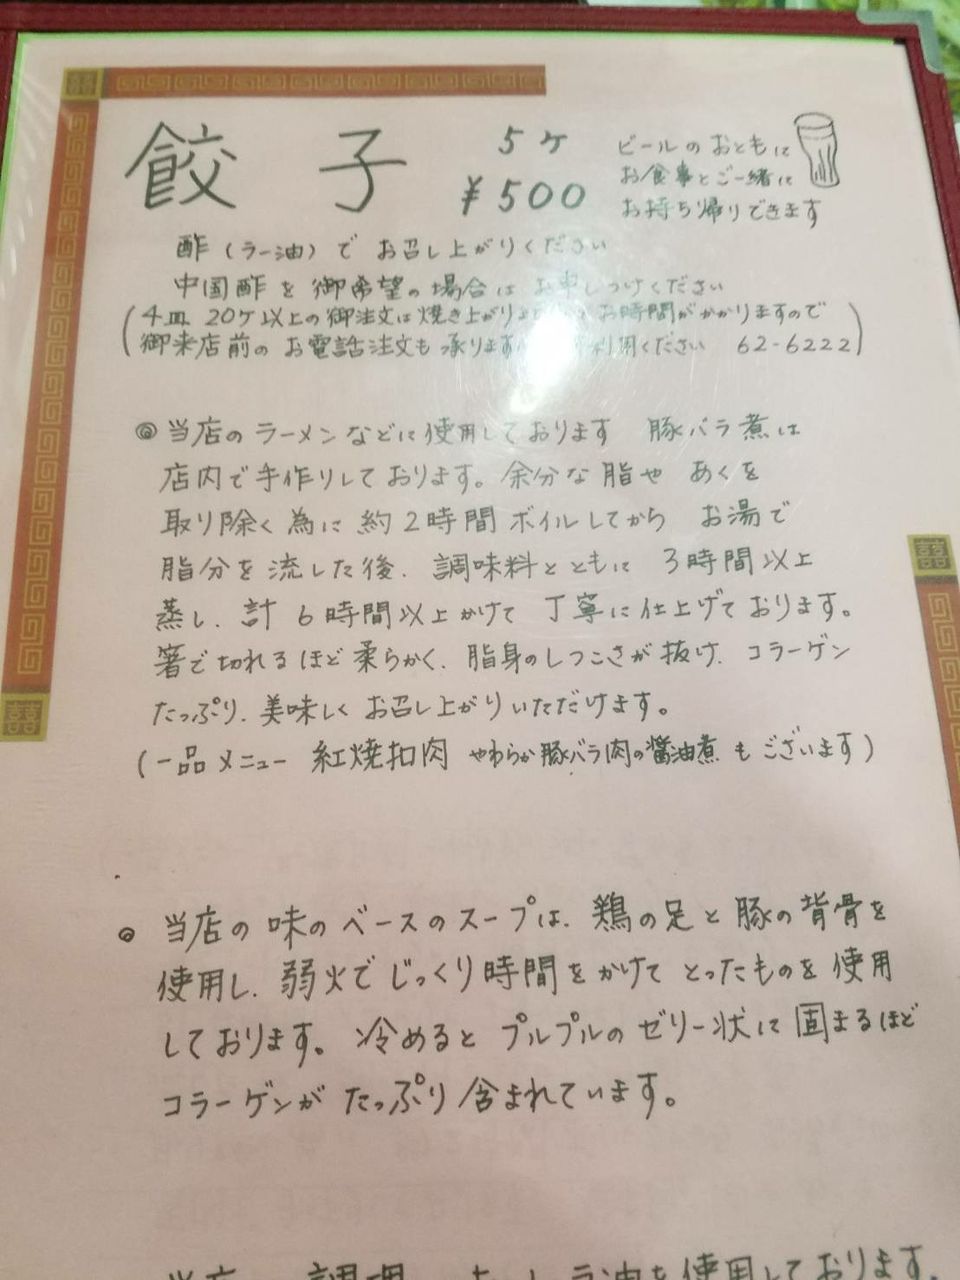 餃子 5ケ ¥500
ビールのおともに
お食事とご一緒に
お持ち帰りできます
酢(ラー油)で お召し上がりください
中国酢を 御希望の場合は お申しつけください
(4皿 20ケ以上の御注文は焼き上がりま お時間がかかりますので
御来店前の お電話注文も 承ります 利用ください 62-6222)
◎当店の ラーメンなどに使用しております 豚バラ煮は
店内で手作りしております。余分な脂や あくを
取り除く為に 約2時間ボイルしてから お湯で
脂分を流した後、調味料とともに 3時間以上
蒸し、計6時間以上かけて 丁寧に仕上げております。
箸で切れるほど柔らかく、脂身のしつこさが抜け、コラーゲン
たっぷり、美味しくお召し上がりいただけます。
(一品メニュー 紅焼扣肉 やわらか豚バラ肉の醤油煮 もございます)
◎ 当店の味のベースのスープは、鶏の足と豚の背骨を
使用し、弱火でじっくり時間をかけて とったものを使用
しております。冷めると プルプルのゼリー状に固まるほど
コラーゲンが たっぷり含まれています。
当店 調理 ラー油を使用しております。